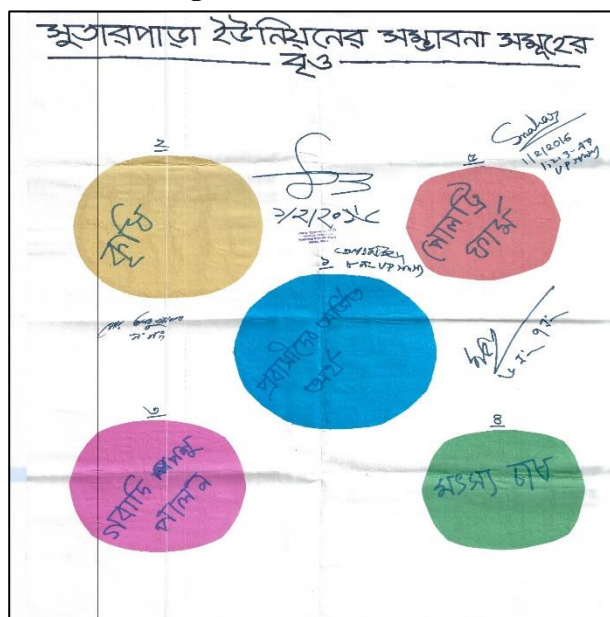 সুতারপাড়া ইউনিয়নের সম্ভাবনা সমূহের
বৃও
২
কৃষি
১/২/২০১৮
৫
পোলট্রি
ফার্ম
1/2/2016
১
প্রবাসীদের অর্জিত
অর্থ
৩
গবাদি পশু
পালন
৪
মৎস্য চাষ